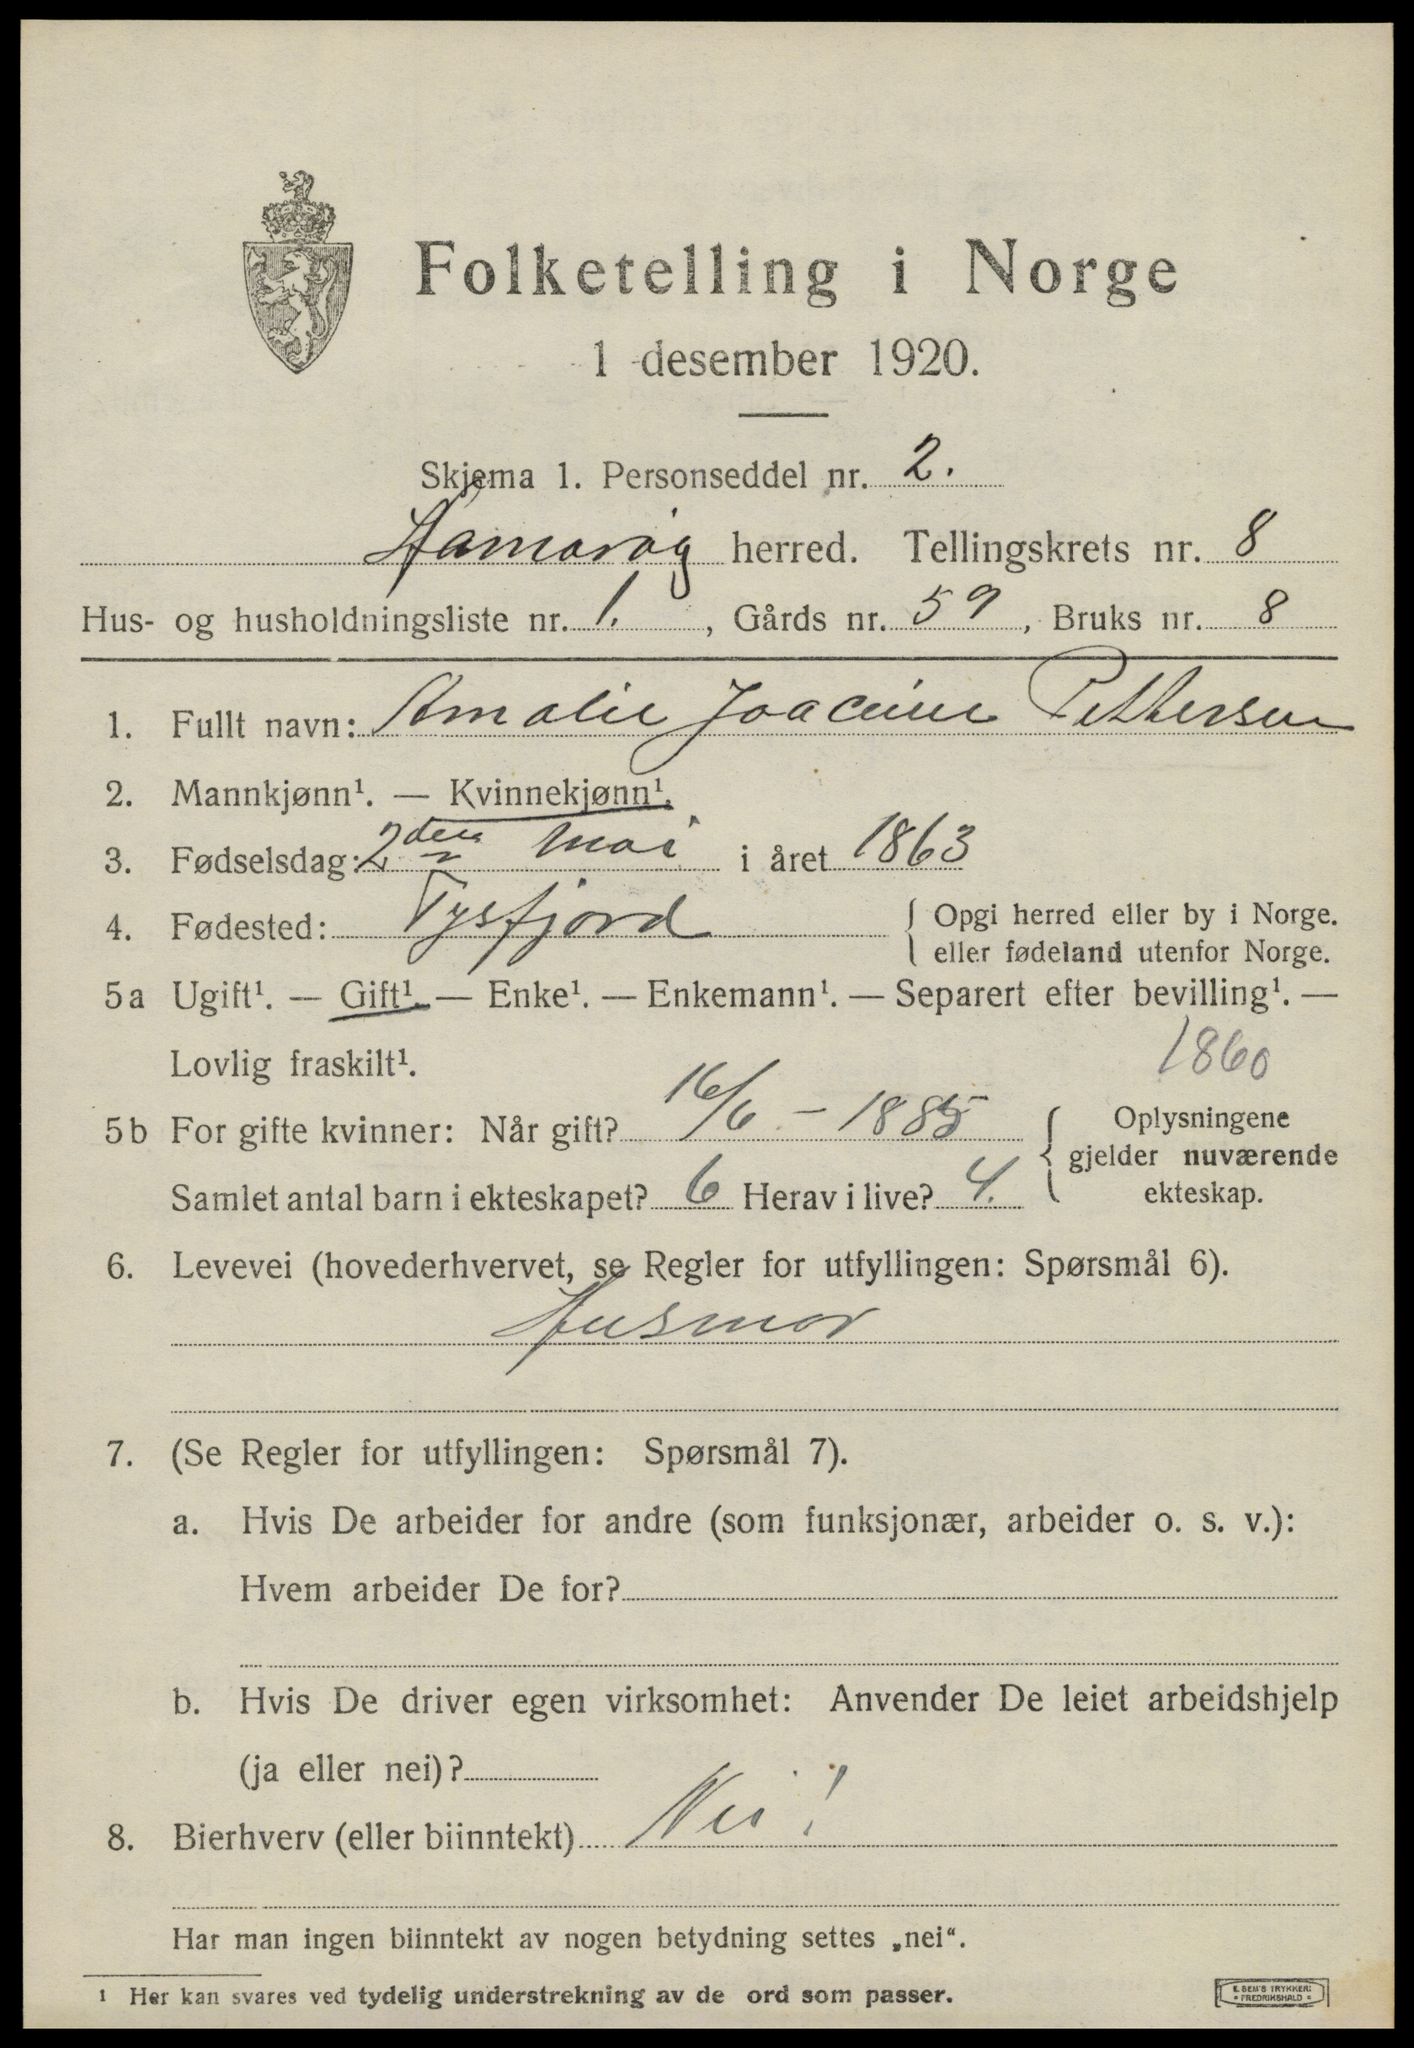 Folketelling i Norge
1 desember 1920.
Skjema 1. Personseddel nr. 2.
Hamarøy herred. Tellingskrets nr. 8
Hus- og husholdningsliste nr. 1. , Gårds nr. 59 , Bruks nr. 8
1. Fullt navn: Amalie Joacime Pettersen
2. Mannkjønn¹. — Kvinnekjønn¹.
3. Fødselsdag: 2den mai i året 1863
4. Fødested: Tysfjord { Opgi herred eller by i Norge.
eller fødeland utenfor Norge.
5a Ugift¹. — Gift¹. — Enke¹. — Enkemann¹. — Separert efter bevilling¹. —
Lovlig fraskilt¹. 1860
5b For gifte kvinner: Når gift? 16/6 - 1885 { Oplysningene
gjelder nuværende
Samlet antal barn i ekteskapet? 6 Herav i live? 4. ekteskap.
6. Levevei (hovederhvervet, se Regler for utfyllingen: Spørsmål 6).
Husmor
7. (Se Regler for utfyllingen: Spørsmål 7).
a. Hvis De arbeider for andre (som funksjonær, arbeider o. s. v.):
Hvem arbeider De for?
b. Hvis De driver egen virksomhet: Anvender De leiet arbeidshjelp
(ja eller nei)?
8. Bierhverv (eller biinntekt) Nei!
Har man ingen biinntekt av nogen betydning settes „nei“.
¹ Her kan svares ved tydelig understrekning av de ord som passer.
E. SEM'S TRYKKERI
FREDRIKSHALD